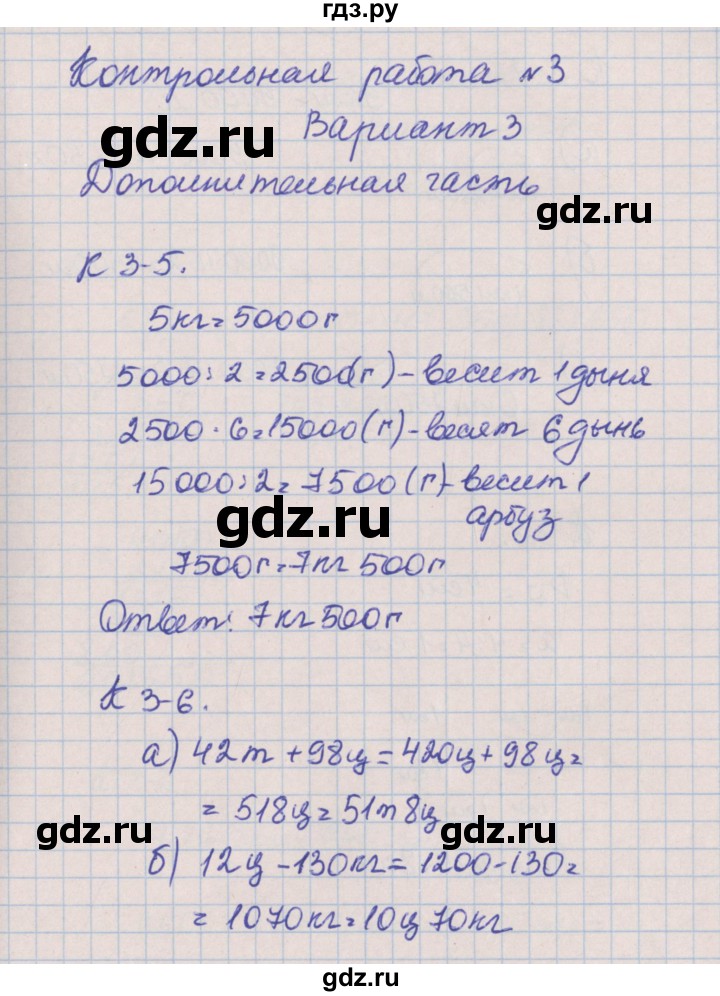 гдз.ру
Контрольная работа №3
Вариант 3
gdz.ru
Дополнительная часть
gdz.ru
К 3-5.
5кг=5000г
5000:2=2500(г)-весит 1 дыня
2500·6=15000(г)-весят 6 дынь
15000:2=7500(г)-весит 1
арбуз
gdz.ru
7500г=7кг 500г
Ответ: 7кг 500г
К 3-6.
а) 42т+98ц=420ц+98ц=
=518ц=51т8ц
gdz.ru
gdz.ru
б) 12ц-130кг=1200-130=
=1070кг=10ц70кг
gdz.ru